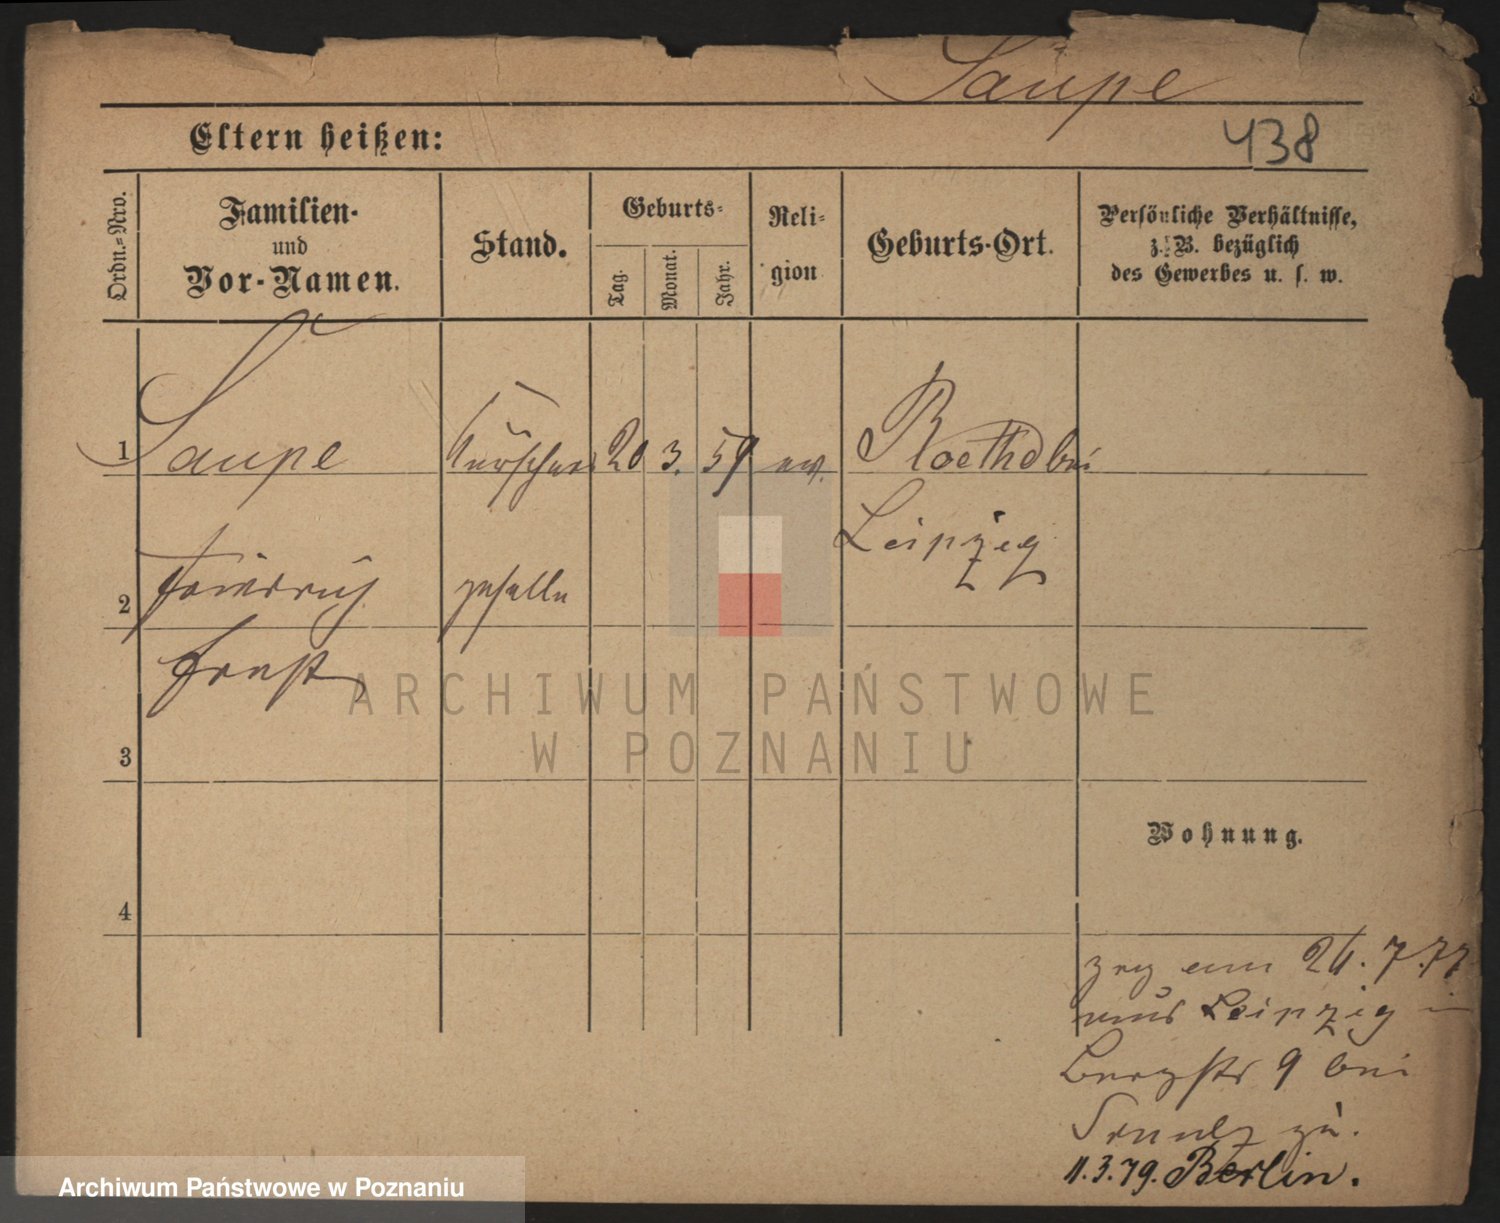 Saupe
438
Eltern heißen:
Ordn.-Nro.
Familien-
und
Vor-Namen.
Stand.
Geburts-
Tag.
Monat.
Jahr.
Reli-
gion
Geburts-Ort.
Persönliche Verhältnisse,
z. B. bezüglich
des Gewerbes u. s. w.
1 Saupe Kürschner 20 3. 59 ev. Roetha bei
Leipzig
2 Friedrich geselle
Ernst
ARCHIWUM PAŃSTWOWE
W POZNANIU
3
Wohnung.
4
am 24. 7. 77
aus Leipzig in
Bergstr 9 bei
zu.
11.3.79. Berlin.
Archiwum Państwowe w Poznaniu